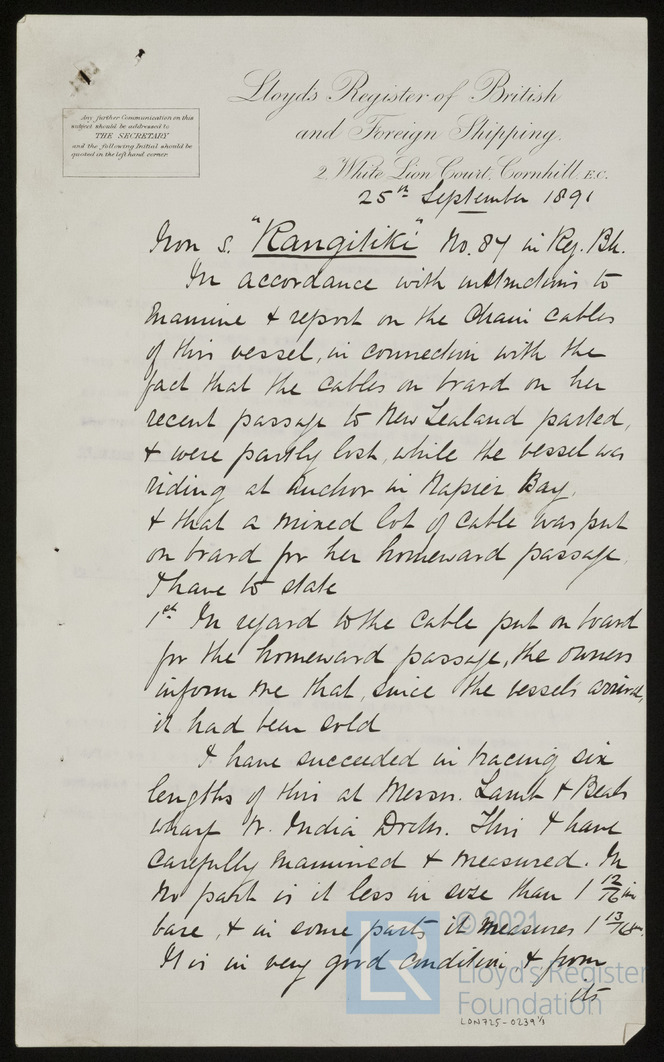 Lloyd's Register of British
and Foreign Shipping.
2 White Lion Court, Cornhill, E.C.
Any further Communication on this
subject should be addressed to
THE SECRETARY
and the following Initial should be
quoted in the left hand corner.
25th September 1891
Iron s. "Rangitiki" No. 84 in Reg. Bk.
In accordance with instructions to
examine & report on the Chain cables
of this vessel, in connection with the
fact that the cables on board on her
recent passage to New Zealand parted,
& were partly lost, while the vessel was
riding at Anchor in Napier Bay,
& that a mixed lot of cable was put
on board for her homeward passage,
I have to state
1st In regard to the cable put on board
for the homeward passage, the owners
inform me that, since the vessel's arrival,
it had been sold
I have succeeded in tracing six
lengths of this at Messrs. Lamb & Beals
wharf W. India Docks. This I have
carefully examined & measured. In
no part is it less in size than 1 12/16 in
bare, & in some parts it measures 1 13/16 in.
It is in very good condition & from
its
© 2021
LR
Lloyd's Register
Foundation
LON725-0239 1/3